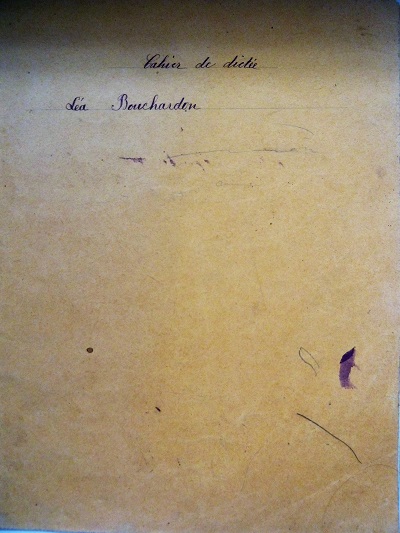 Cahier de dictée
Léa Bouchardon